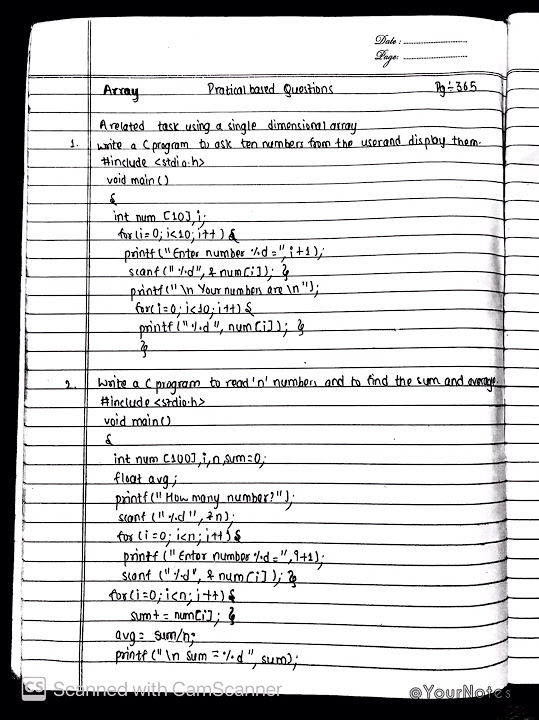 Date :
Page:
Array Pratical based Questions Pg÷365
A related task using a single dimensional array
1. write a C program to ask ten numbers from the user and display them.
#include <stdio.h>
void main ()
{
int num [10], i;
for (i=0; i<10; i++) {
printf ("Enter number %d =", i+1);
scanf (" %d", & num[i]); }
printf ("\n Your numbers are \n");
for( i=0; i<10; i++) {
printf (" %d ", num[i]); }
}
2. Write a C program to read 'n' numbers and to find the sum and average.
#include <stdio.h>
void main ()
{
int num [100], i, n, sum=0;
float avg;
printf (" How many number?");
scanf (" %d", &n);
for (i=0; i<n; i++) {
printf ("Enter number %d =", i+1);
scanf (" %d", & num[i] ); }
for(i=0; i<n; i++) {
sum+ = num[i]; }
avg = sum/n;
printf ("\n sum = %d", sum);
CS Scanned with CamScanner
@YourNotes